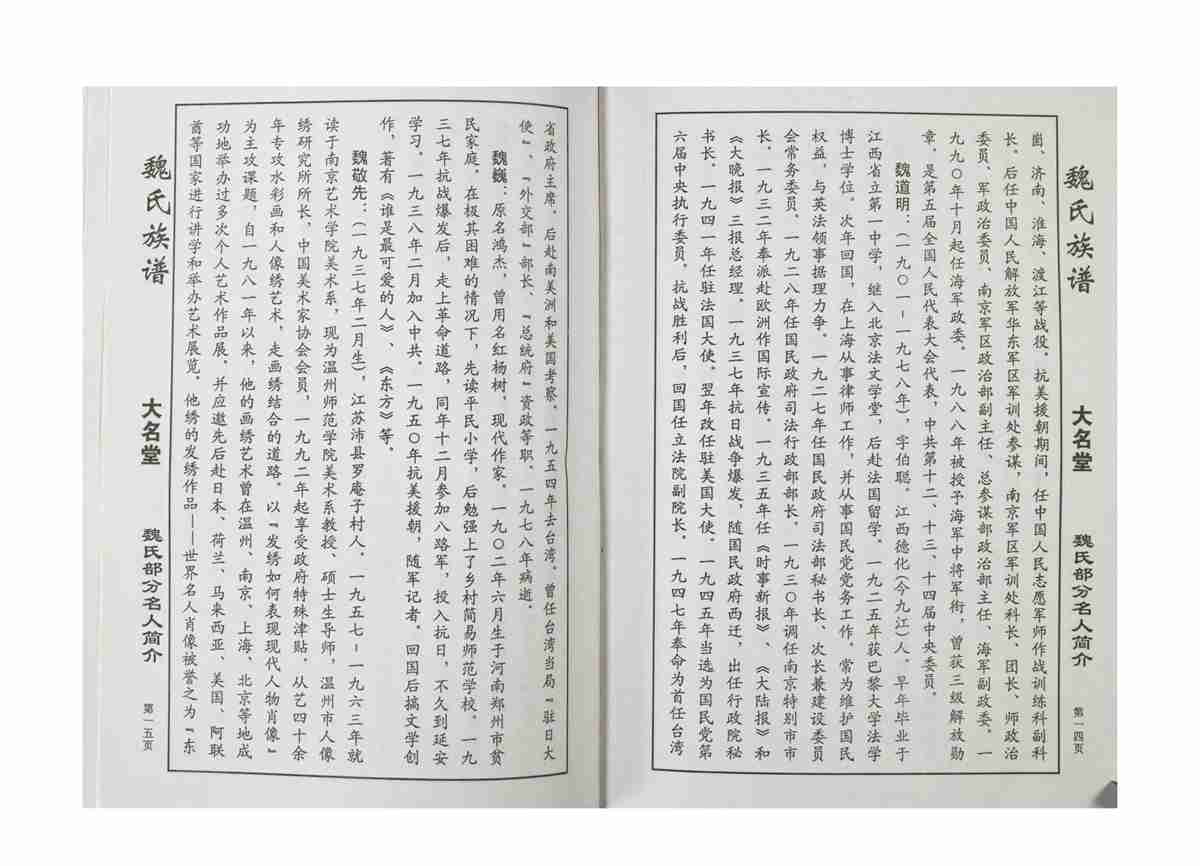 魏氏族谱 大名堂 魏氏部分名人简介 第一四页
崮、济南、淮海、渡江等战役。抗美援朝期间，任中国人民志愿军师作战训练科副科
长。后任中国人民解放军华东军区军训处参谋，南京军区军训处科长、团长、师政治
委员、军政治委员、南京军区政治部副主任、总参谋部政治部主任、海军副政委。一
九九〇年十月起任海军政委。一九八八年被授予海军中将军衔，曾获三级解放勋
章，是第五届全国人民代表大会代表，中共第十二、十三、十四届中央委员。
魏道明：(一九〇一－一九七八年)，字伯聪。江西德化(今九江)人。早年毕业于
江西省立第一中学，继入北京法文学堂，后赴法国留学。一九二五年获巴黎大学法学
博士学位。次年回国，在上海从事律师工作，并从事国民党党务工作。常为维护国民
权益，与英法领事据理力争。一九二七年任国民政府司法部秘书长、次长兼建设委员
会常务委员、一九二八年任国民政府司法行政部部长。一九三〇年调任南京特别市市
长，一九三二年奉派赴欧洲作国际宣传。一九三五年任《时事新报》、《大陆报》和
《大晚报》三报总经理。一九三七年抗日战争爆发，随国民政府西迁，出任行政院秘
书长。一九四一年任驻法国大使。翌年改任驻美国大使。一九四五年当选为国民党第
六届中央执行委员，抗战胜利后，回国任立法院副院长。一九四七年奉命为首任台湾
省政府主席，后赴南美洲和美国考察。一九五四年去台湾。曾任台湾当局“驻日大
使”、“外交部”部长、“总统府”资政等职。一九七八年病逝。
魏巍：原名鸿杰，曾用名红杨树，现代作家。一九〇二年六月生于河南郑州市贫
民家庭。在极其困难的情况下，先读平民小学，后勉强上了乡村简易师范学校。一九
三七年抗战爆发后，走上革命道路，同年十二月参加八路军，投入抗日，不久到延安
学习。一九三八年二月加入中共。一九五〇年抗美援朝，随军记者。回国后搞文学创
作，著有《谁是最可爱的人》、《东方》等。
魏敬先：(一九三七年二月生)，江苏沛县罗庵子村人。一九五七－一九六三年就
读于南京艺术学院美术系，现为温州师范学院美术系教授、硕士生导师，温州市人像
绣研究所所长，中国美术家协会会员，一九九二年起享受政府特殊津贴。从艺四十余
年专攻水彩画和人像绣艺术，走画绣结合的道路。以“发绣如何表现现代人物肖像”
为主攻课题，自一九八一年以来，他的画绣艺术曾在温州、南京、上海、北京等地成
功地举办过多次个人艺术作品展，并应邀先后赴日本、荷兰、马来西亚、美国、阿联
酋等国家进行讲学和举办艺术展览。他绣的发绣作品——世界名人肖像被誉之为“东
魏氏族谱 大名堂 魏氏部分名人简介 第一五页